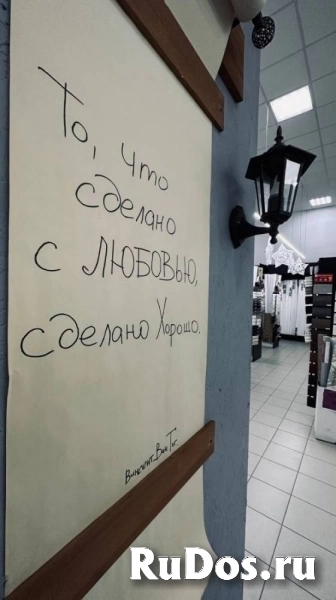 То, что
сделано
с ЛЮБОВЬЮ,
сделано Хорошо.
Винсент Ван Гог
RuDos.ru